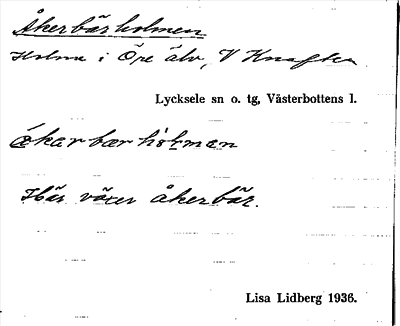 Åkerbärholmen
Holme i Öre älv, V Knaften
Lycksele sn o. tg, Västerbottens l.
åkarbærhólmæn
Här växer åkerbär.
Lisa Lidberg 1936.